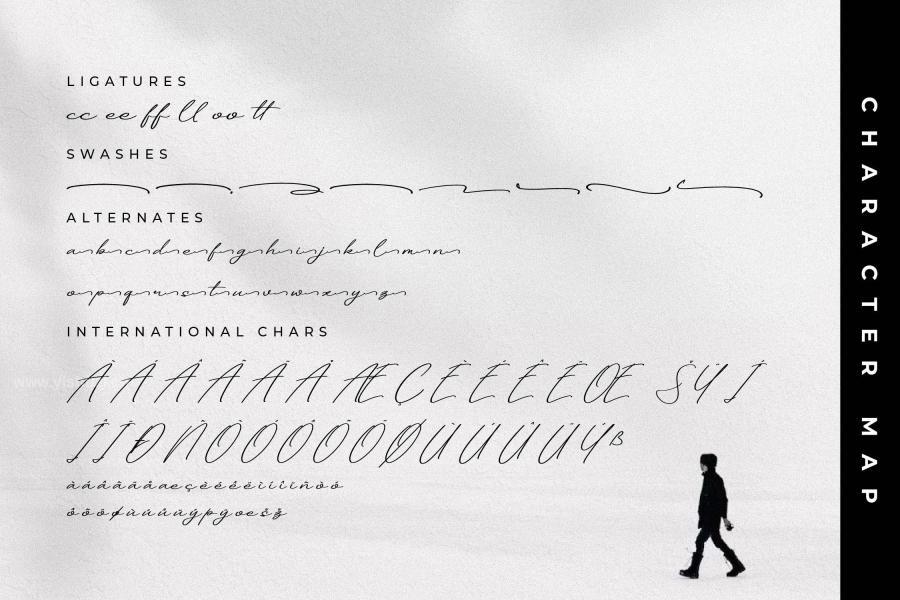 LIGATURES
cc ee ff ll oo tt
SWASHES
ALTERNATES
a b c d e f g h i j k l m n
o p q r s t u v w x y z
INTERNATIONAL CHARS
À Á Â Ã Ä Å Æ Ç È É Ê Ë Œ Š Ÿ Ì
Î Ï Ð Ñ Ò Ó Ô Õ Ö Ø Ù Ú Û Ü Ý ß
à á â ã ä å æ ç è é ê ë ì í î ï ñ ò ó
ô õ ö ø ù ú û ü ý þ ÿ œ š ž
CHARACTER MAP